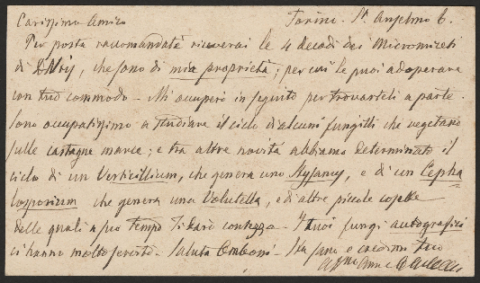 Carissimo Amico Torino. St. Anselmo 6.
Per posta racomandata riceverai le 4 decadi dei Micromiceti
di D'Alvis, che sono di mia proprietà; per cui le puoi adoperare
con tuo commodo - Mi occuperò in seguito per trovarteli a parte.
Sono occupatissimo a studiare il ciclo di alcuni funghilli che vegetano
sulle castagne marce; e tra altre novità abbiamo determinato il
ciclo di un Verticillium, che genera uno Stysanus, e di un Cepha
losporium che genera una Volutella, e di altre piccole cosette
delle quali a suo tempo ti darò contezza - I tuoi funghi autografici
ci hanno molto servito. Saluta Omboni - Sta sano e credimi tuo